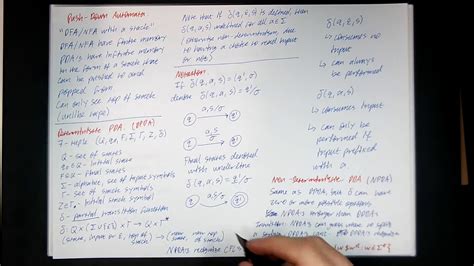 Push-Down Automata
"DFA/NFA with a stack"
DFA/NFA have finite memory
PDA's have infinite memory
in the form of a stack that
can be pushed to and
popped from
Can only see top of stack
(unlike tape)
Deterministic PDA (DPDA)
7-tuple
Q - set of states
q₀∈Q - initial state
F⊆Q - final states
Σ - alphabet, set of input symbols
Γ - set of stack symbols
Z∈Γ - initial stack symbol
δ - partial transition function
δ: Q×(Σ∪{ε})×Γ → Q×Γ*
(state, input or ε, top of stack) → (new state, new top of stack)
Note that if δ(q, ε, s) is defined, then
δ(q, a, s) undefined for all a∈Σ
(otherwise non-determinism, due
to having a choice to read input
or not)
Notation
If δ(q, a, s) = (q', σ)
denote δ(q, a, s) = q'/σ
q a,s/σ q'
Final states denoted
with underline
δ(q, a, s) = q'/σ
q a,s/σ q'
NPDA's recognise CFL's
δ(q, ε, s)
↳ consumes no
input
↳ can always
be performed
δ(q, a, s)
↳ consumes input
↳ can only be
performed if
input prefixed
with a
Non-Deterministic PDA (NPDA)
Same as DPDA, but δ can have
zero or more possible options
NPDA's stronger than DPDA's
NPDA's can guess where to split
a string, DPDA's can't